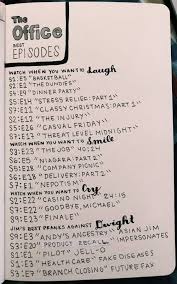 The
Office
BEST
EPISODES
WATCH WHEN YOU WANT TO Laugh
S1:E5 "BASKETBALL"
S2:E1 "THE DUNDIES"
S4:E9 "DINNER PARTY"
S5:E14 "STRESS RELIEF: PART 1"
S7:E11 "CLASSY CHRISTMAS: PART 1"
S3:E1 "THE INJURY"
S5:E26 "CASUAL FRIDAY"
S7:E17 "THREAT LEVEL MIDNIGHT"
WATCH WHEN YOU WANT TO Smile
S3:E23 "THE JOB" 40:24
S6:E5 "NIAGARA: PART 2"
S5:E28 "COMPANY PICNIC"
S6:E18 "DELIVERY: PART 2"
S7:E1 "NEPOTISM"
WATCH WHEN YOU WANT TO Cry
S2:E22 "CASINO NIGHT" 24:15
S7:E22 "GOODBYE, MICHAEL"
S9:E23 "FINALE"
JIM'S BEST PRANKS AGAINST Dwight
S9:E3 "ANDY'S ANCESTRY" ASIAN JIM
S3:E20 "PRODUCT RECALL" IMPERSONATES
S1:E1 "PILOT" JELL-O
S1:E3 "HEALTH CARE" FAKE DISEASES
S3:E7 "BRANCH CLOSING" FUTURE FAX